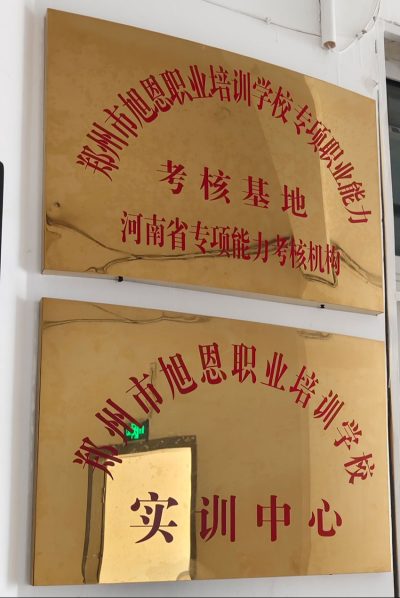 郑州市旭恩职业培训学校专项职业能力
考核基地
河南省专项能力考核机构
郑州市旭恩职业培训学校
实训中心